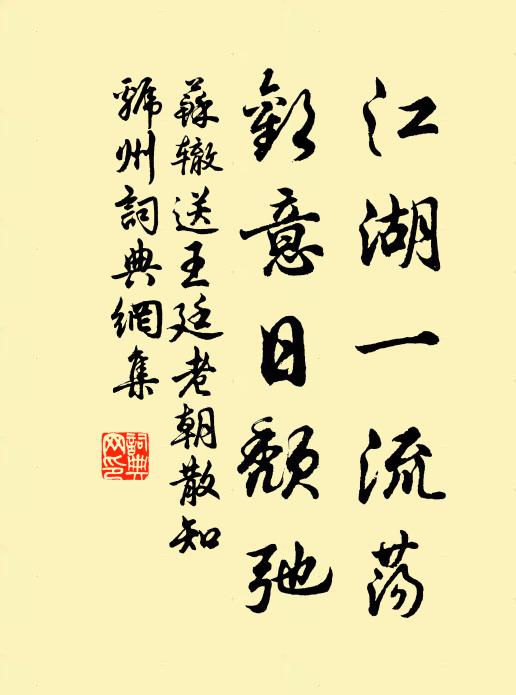 江湖一流荡
歡意日頹弛
蘇辙送王廷老朝散知
虢州詞典網集
詞典网印